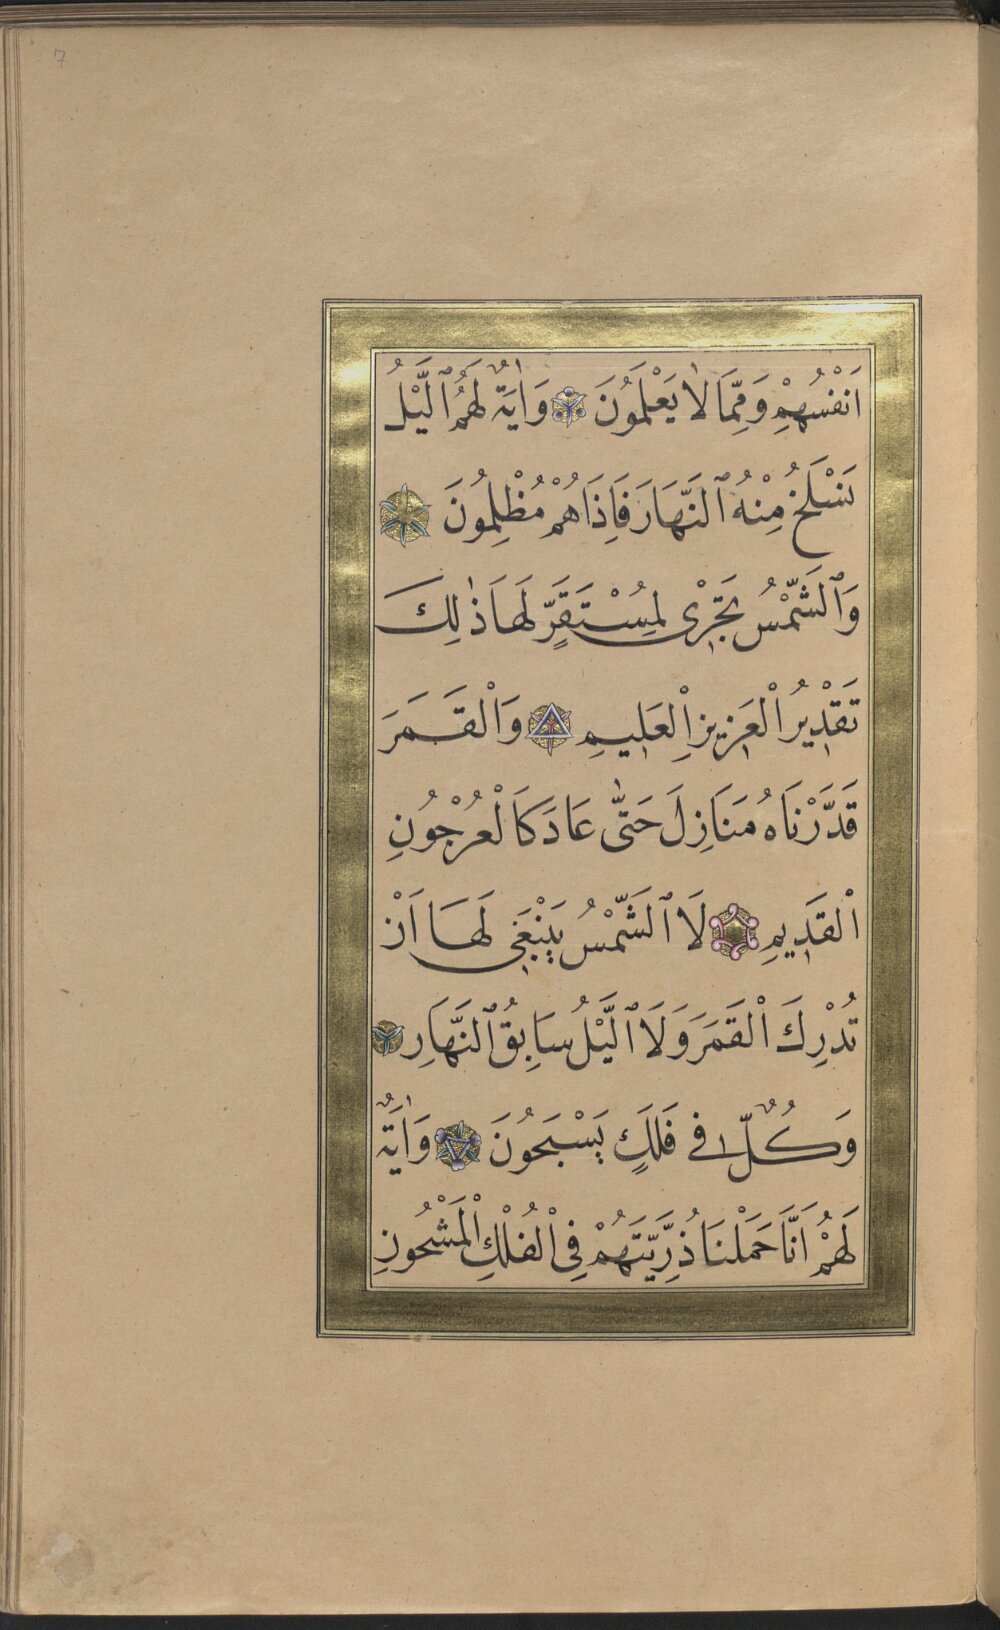 7
اَنْفُسِهِمْ وَمِمَّا لَا يَعْلَمُونَ وَاٰيَةٌ لَهُمُ ٱلَّيْلُ
نَسْلَخُ مِنْهُ ٱلنَّهَارَ فَاِذَا هُمْ مُظْلِمُونَ
وَٱلشَّمْسُ تَجْرٖى لِمُسْتَقَرٍّ لَهَا ذٰلِكَ
تَقْدٖيرُ الْعَزٖيزِ الْعَلٖيمِ وَالْقَمَرَ
قَدَّرْنَاهُ مَنَازِلَ حَتّٰى عَادَ كَالْعُرْجُونِ
الْقَدٖيمِ لَا ٱلشَّمْسُ يَنْبَغٖى لَهَا اَنْ
تُدْرِكَ الْقَمَرَ وَلَا ٱلَّيْلُ سَابِقُ ٱلنَّهَارِ
وَكُلٌّ فٖى فَلَكٍ يَسْبَحُونَ وَاٰيَةٌ
لَهُمْ اَنَّا حَمَلْنَا ذُرِّيَّتَهُمْ فِى الْفُلْكِ الْمَشْحُونِ